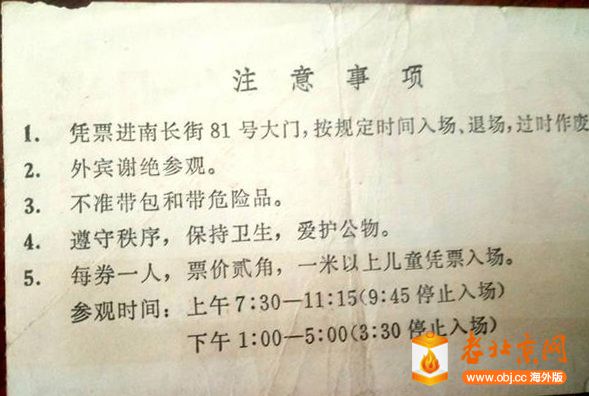 注意事项
1. 凭票进南长街81号大门,按规定时间入场、退场,过时作废
2. 外宾谢绝参观。
3. 不准带包和带危险品。
4. 遵守秩序，保持卫生，爱护公物。
5. 每券一人，票价贰角，一米以上儿童凭票入场。
参观时间：上午7:30—11:15(9:45停止入场)
下午1:00—5:00(3:30停止入场)
老北京网
www.obj.cc 海外版